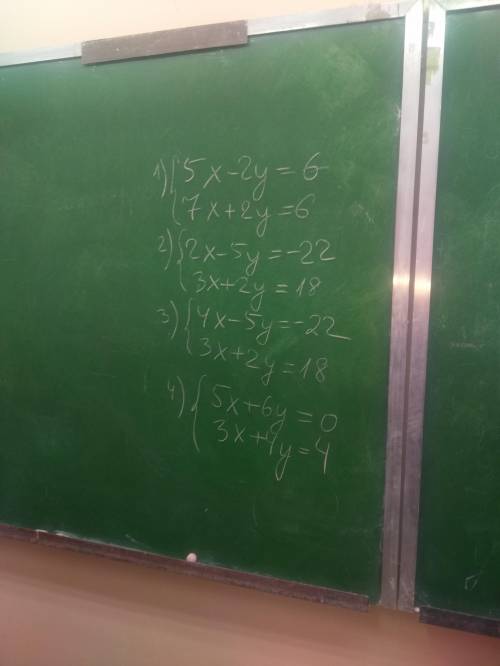 1) { 5x-2y=6
7x+2y=6
2) { 2x-5y=-22
3x+2y=18
3) { 4x-5y=-22
3x+2y=18
4) { 5x+6y=0
3x+4y=4